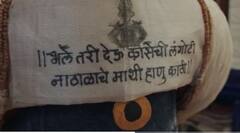 ॥भले तरी देऊ कासेची लंगोटी
नाठाळाचे माथी हाणू काठी॥